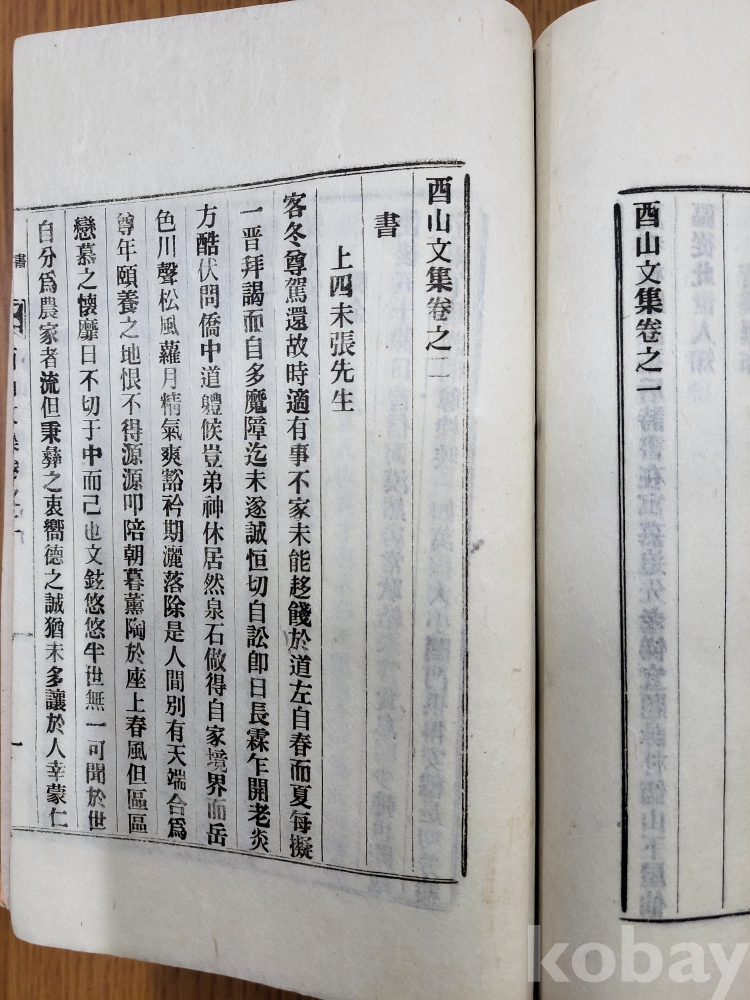 酉山文集卷之一
酉山文集卷之二
書
上四未張先生
客冬尊駕還故時適有事不家未能趍餞於道左自春而夏每擬
一晋拜謁而自多魔障迄未遂誠恒切自訟卽日長霖乍開老炎
方酷伏問僑中道軆候豈弟神休居然泉石做得自家境界而岳
色川聲松風蘿月精氣爽豁衿期灑落除是人間別有天端合爲
尊年頤養之地恨不得源源叩陪朝暮薰陶於座上春風但區區
戀慕之懷靡日不切于中而已也文鉉悠悠半世無一可聞於世
自分爲農家者流但秉彝之衷嚮德之誠猶未多讓於人幸蒙仁
書
一
kobay